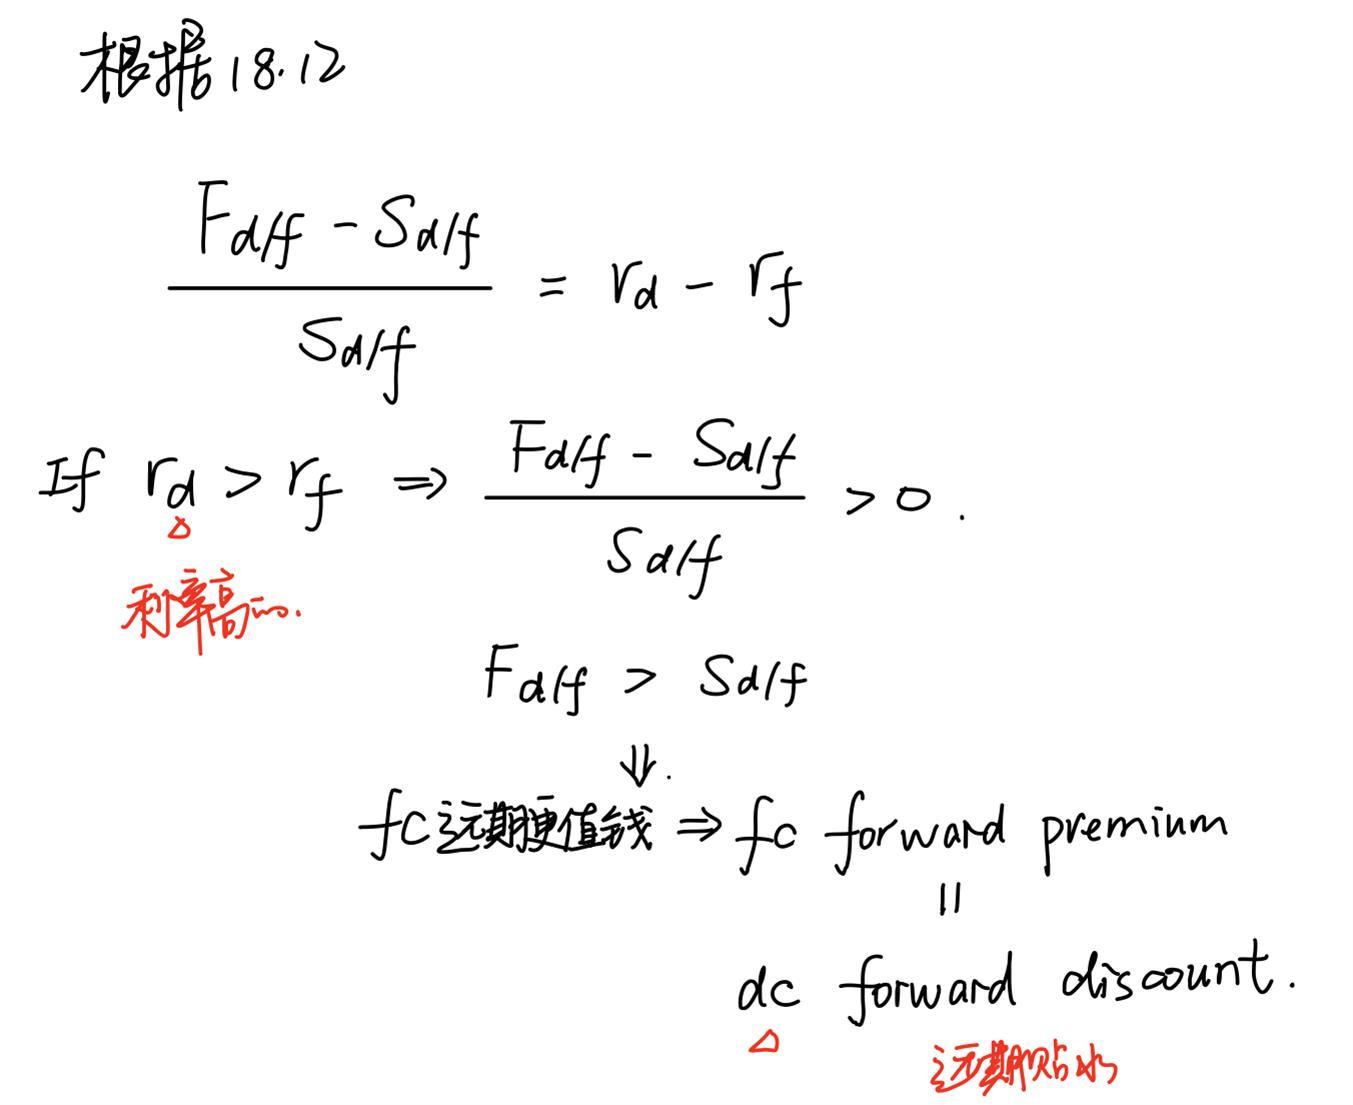 根据18.12
(F_{d/f} - S_{d/f}) / S_{d/f} = r_d - r_f
If r_d > r_f ⇒ (F_{d/f} - S_{d/f}) / S_{d/f} > 0.
△
利率高的.
F_{d/f} > S_{d/f}
⇓.
fc远期更值钱 ⇒ fc forward premium
||
dc forward discount.
△
远期贴水